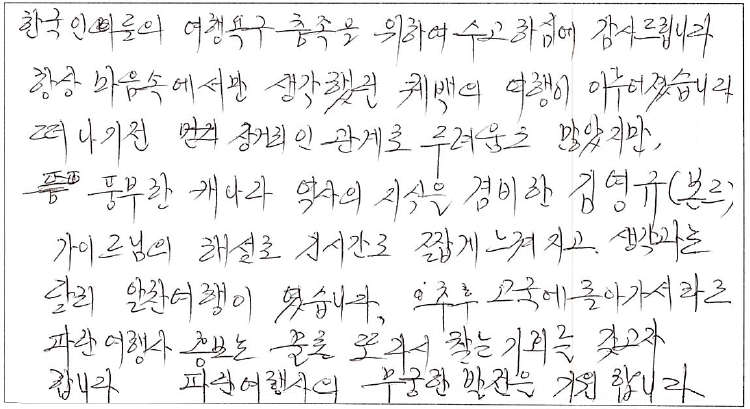 한국인들의 여행욕구 충족을 위하여 수고하심에 감사드립니다
항상 마음속에서만 생각했던 퀘백의 여행이 이루어졌습니다
떠나기전 장거리인 관계로 두려움도 많았지만,
풍부한 캐나다 역사의 지식을 겸비한 김영규(본드)
가이드님의 해설로 긴시간도 짧게 느껴지고. 생각과는
달리 알찬여행이 됬습니다. 추후 고국에 돌아가서라도
파란여행사 홍보는 물론 또다시 찾는 기회를 갖고자
합니다 파란여행사의 무궁한 발전을 기원 합니다